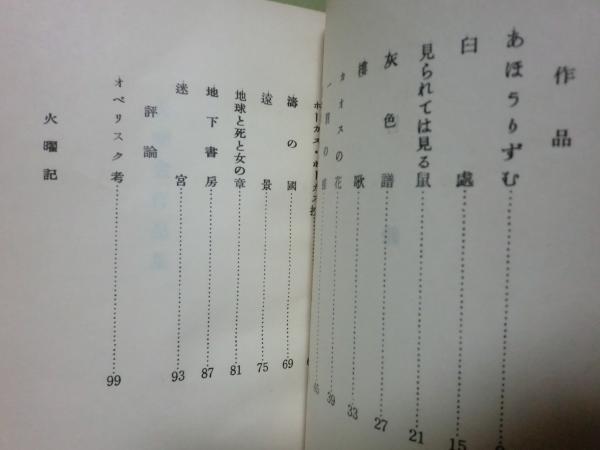 作品
あほうりずむ
臼處……15
見られては見る鼠……21
灰色譜……27
樓歌……33
カオスの花……39
一 の
ホーカス・ポーカス
濤の國……69
遠景……75
地球と死と女の章……81
地下書房……87
迷宮……93
評論
オベリスク考……99
火曜記